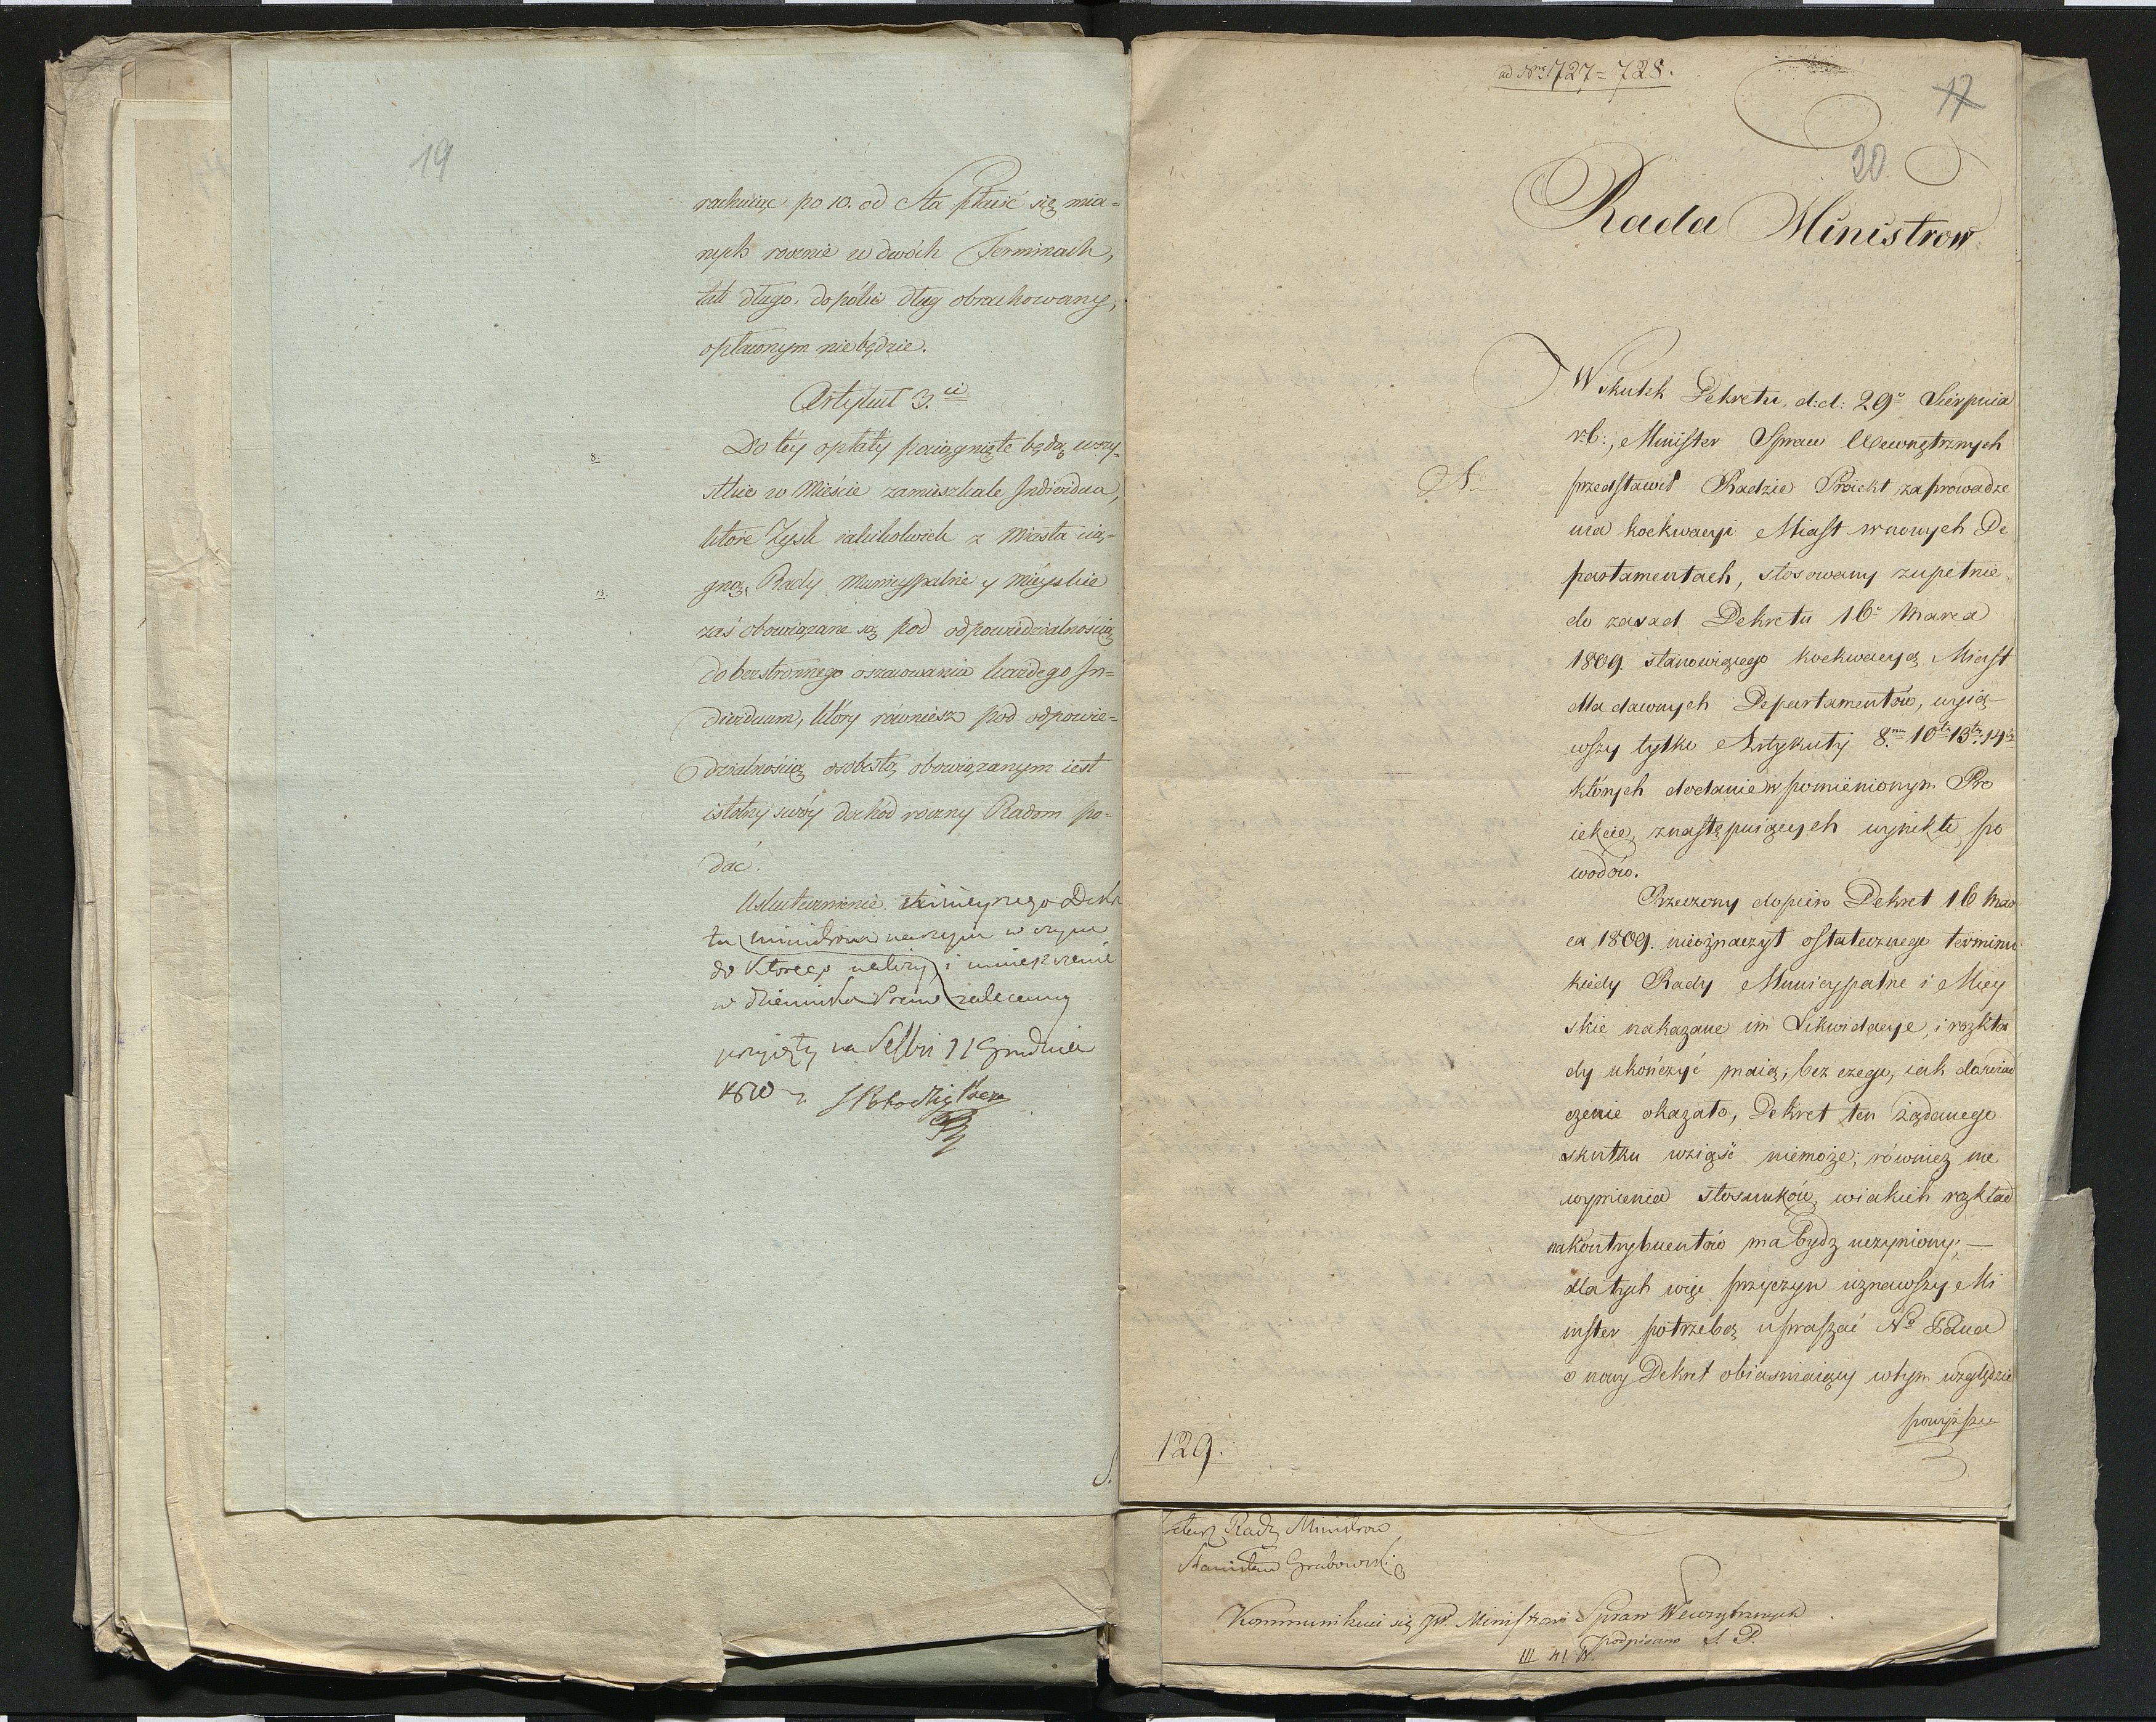 19
rachuiąc po 10. od Sta płacić się mia=
nych rocznie w dwóch Terminach,
tak długo, dopóki dług obrachowany,
opłaconym niebędzie.
Artykuł 3.ci
Do téy opłaty pociągnięte będą wszy=
8.
stkie w Mieście zamieszkałe Individua,
które Zysk iakikolwiek z Miasta cią=
gną, Rady Municypalne y Mieyskie
zaś obowiązane są pod odpowiedzialnością
do bezstronnego oszacowania każdego In=
dividuum, który równiesz pod odpowie=
dzialnością osobistą obowiązanym iest
istotny swóy dochód roczny Radom po=
dać.
Uskutecznienie ninieyszego Dekre
tu Ministrom naszym w czym
do którego należy, i umieszczenie
w dzienniku Praw zalecamy
przyięty na Sessyi 11 Grudnia
1810 r.
ad Nrs 1727=728.
17
20
Rada Ministrow
Wskutek Dekretu, d:d: 29o Sierpnia
r:b:, Minister Spraw Wewnętrznych
przedstawił Radzie Proiekt zaprowadze
nia koekwacyi Miast w nowych De
partamentach, stosowany zupełnie
do zasad Dekretu 16o Marca
1809. stanowiącego koekwacyą Miast
dla dawnych Departamentów, wyią-
wszy tylko Artykuły 8.my 10ty 13ty. 14ty
których dodanie w pomienionym Pro
iekcie, z następuiących wynikło po
wodów.
Rzeczony dopiero Dekret 16 Mar
ca 1809. nieoznaczył ostatecznego terminu
kiedy Rady Municypalne i Miey
skie nakazane im Likwidacye, i rozkła
dy ukończyć maią, bez czego, iak doświad
czenie okazało, Dekret ten żądanego
skutku wziąść niemoże; równiez nie
wymienia stosunków, w iakich rozkład
na kontrybuentów ma bydz uczyniony,—
dla tych więc przyczyn uznawszy Mi
nister potrzebą upraszać No Pana
o nowy Dekret obiasniaiący w tym względzie
powyższe
129.
Rady Ministrow
Stanisław Grabowski
Kommunikuie się JW. Ministrowi Spraw Wewnętrznych
podpisano S. P.